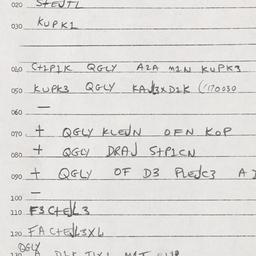 020 STEJTL
030 KUPK1
040 C+1P1K QGLY A2A M1N KUPK3
050 KUPK3 QGLY KAJ3XD1K ('170030
060 —
070 + QGLY KLEJN OFN KOP
080 + QGLY DRAJ S+P1CN
090 + QGLY OF D3 PLEJC3 A
100 —
110 F3C+EJL3
120 FAC+EJL3XL
QGLY